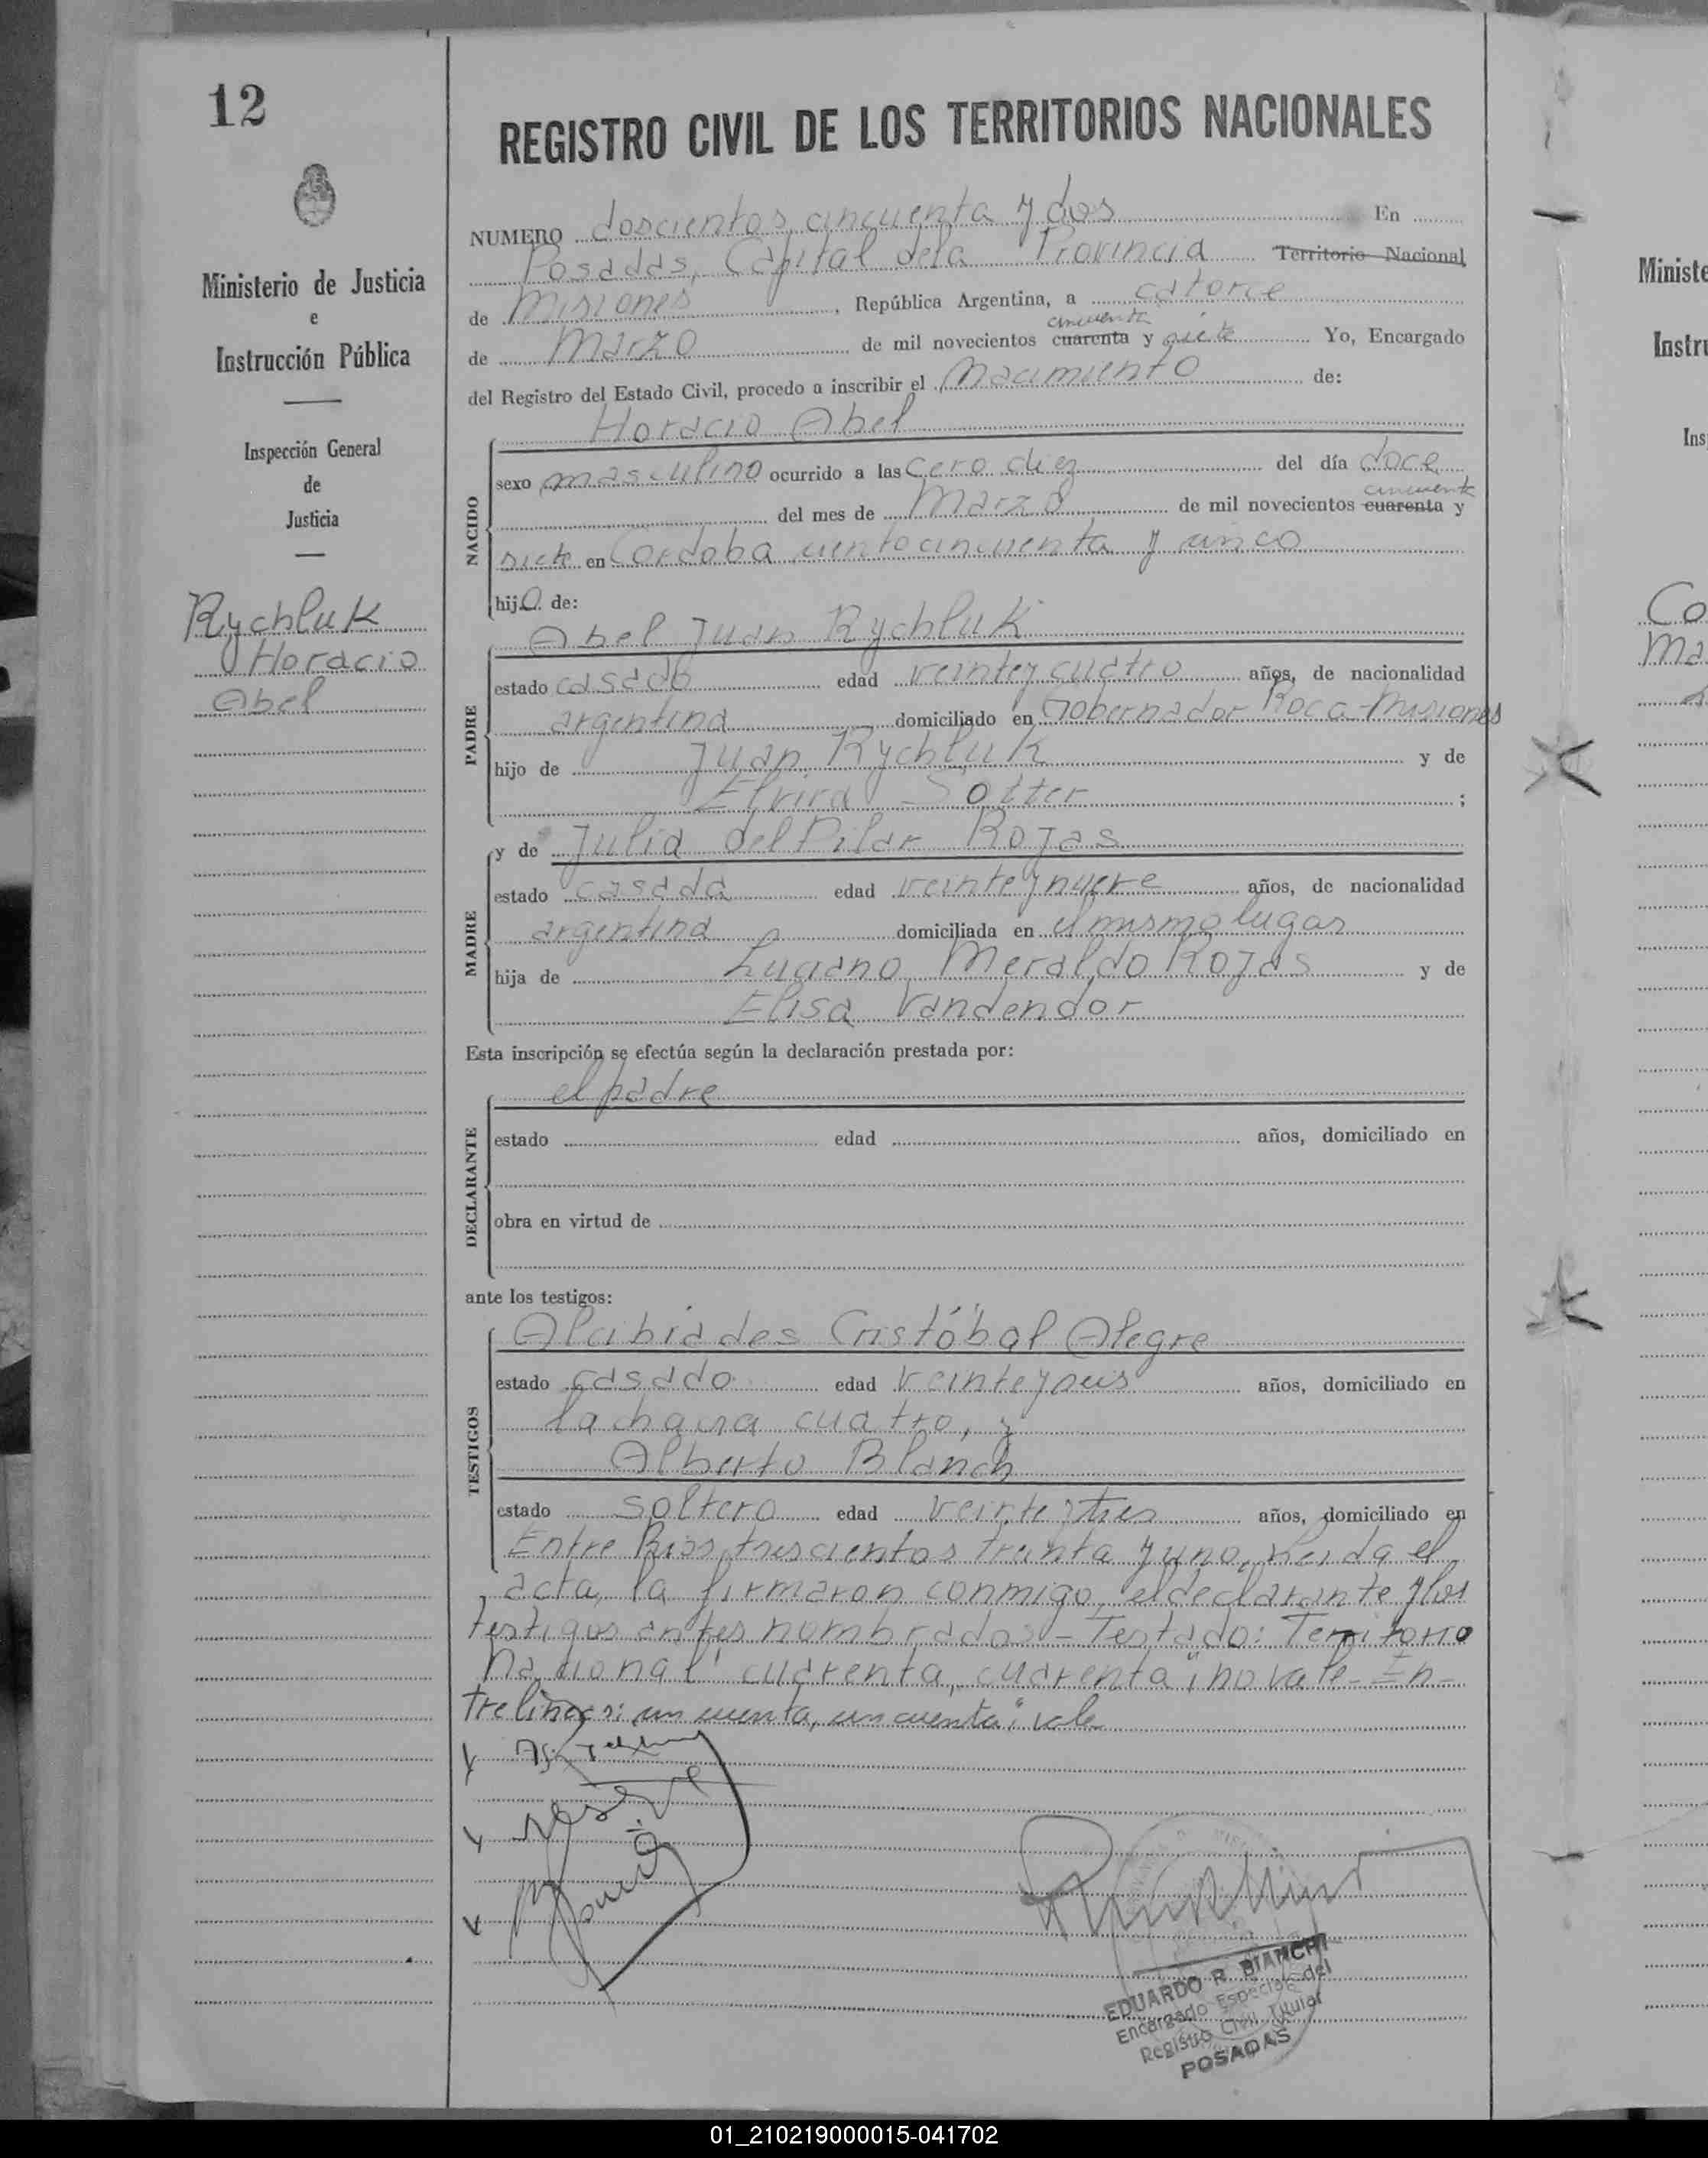 12
REGISTRO CIVIL DE LOS TERRITORIOS NACIONALES
Ministerio de Justicia
e
Instrucción Pública
Inspección General
de
Justicia
Rychluk
Horacio
Abel
NUMERO doscientos cincuenta y dos En
Posadas, Capital de la Provincia Territorio Nacional
de Misiones, República Argentina, a catorce
cincuenta
de Marzo de mil novecientos cuarenta y siete Yo, Encargado
del Registro del Estado Civil, procedo a inscribir el Nacimiento de:
Horacio Abel
NACIDO
sexo masculino ocurrido a las cero diez del día doce
cincuenta
del mes de Marzo de mil novecientos cuarenta y
siete en Cordoba ciento cincuenta y cinco
hijo de:
Abel Juan Rychluk
PADRE
estado casado edad veinte y cuatro años, de nacionalidad
argentina domiciliado en Gobernador Roca - Misiones
hijo de Juan Rychluk y de
Elvira Sotter ;
y de Julia del Pilar Rojas
MADRE
estado casada edad veinte y nueve años, de nacionalidad
argentina domiciliada en el mismo lugar
hija de Luciano Meraldo Rojas y de
Elisa Vandendor
Esta inscripción se efectúa según la declaración prestada por:
el padre
DECLARANTE
estado edad años, domiciliado en
obra en virtud de
ante los testigos:
Alcibiades Cristóbal Alegre
TESTIGOS
estado casado edad veinte y seis años, domiciliado en
la chacra cuatro, y
Alberto Blanch
estado soltero edad veinte y tres años, domiciliado en
Entre Rios trescientos treinta y uno, Leida el
acta, la firmaron conmigo, el declarante y los
testigos antes nombrados - Testado: Territorio
Nacional" cuarenta, cuarenta", no vale - En-
trelineas: cincuenta, cincuenta": vale
EDUARDO R. BIANCHI
Encargado Especial del
Registro Civil Titular
POSADAS
Ministe
Instru
Ins
Co
Ma
01_210219000015-041702